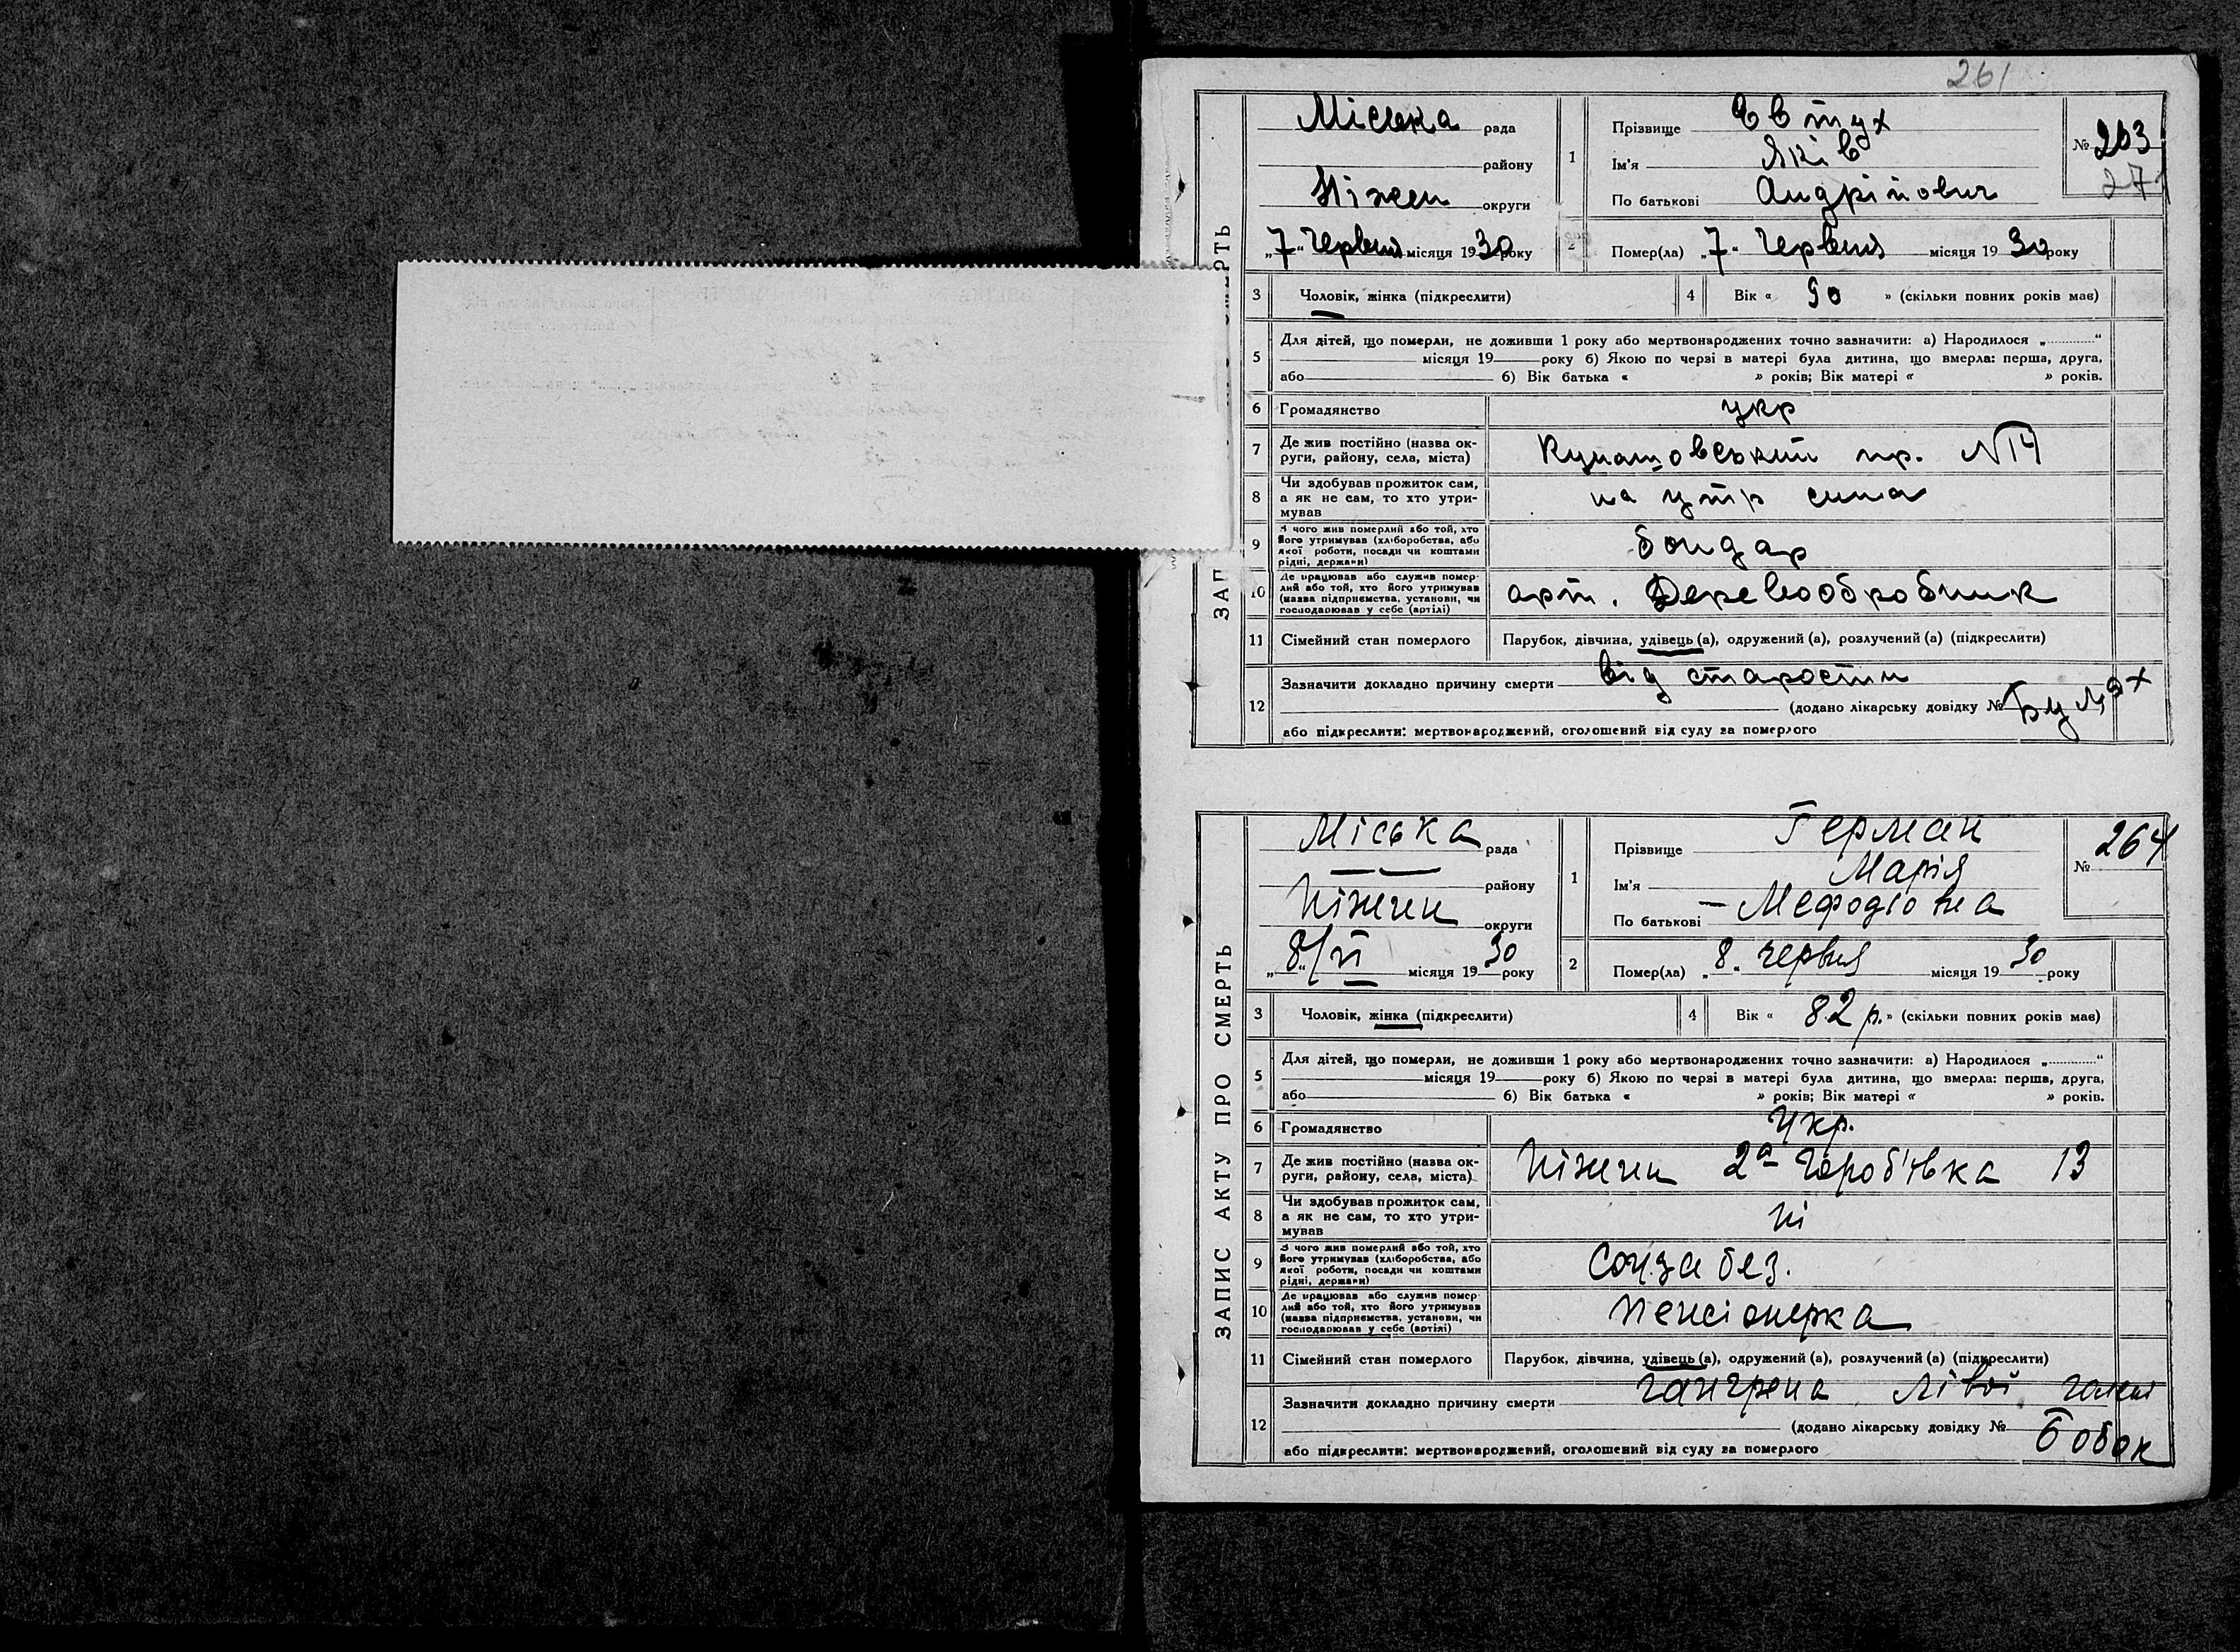 261
ЗАПИС АКТУ ПРО СМЕРТЬ
Міська рада
району
Ніжен округи
„7“ Червня місяця 1930 року
1
Прізвище Євтух
Ім'я Яків
По батькові Андрійович
№ 263
27
2 Помер(ла) „7“ Червня місяця 1930 року
3 Чоловік, жінка (підкреслити)
4 Вік « 90 » (скільки повних років має)
5 Для дітей, що померли, не доживши 1 року або мертвонароджених точно зазначити: а) Народилося „ “
місяця 19 року б) Якою по черзі в матері була дитина, що вмерла: перша, друга,
або б) Вік батька « » років; Вік матері « » років.
6 Громадянство укр
7 Де жив постійно (назва ок-
руги, району, села, міста) Кунашовський пр. №14
8 Чи здобував прожиток сам,
а як не сам, то хто утри-
мував на утр сина
9 З чого жив померлий або той, хто
його утримував (хліборобства, або
якої роботи, посади чи коштами
рідні, держави) бондар
10 Де працював або служив помер-
лий або той, хто його утримував
(назва підприємства, установи, чи
господарював у себе (артілі) арт. Деревообробник
11 Сімейний стан померлого Парубок, дівчина, удівець (а), одружений (а), розлучений (а) (підкреслити)
12 Зазначити докладно причину смерти від старости
(додано лікарську довідку №
або підкреслити: мертвонароджений, оголошений від суду за померлого
ЗАПИС АКТУ ПРО СМЕРТЬ
Міська рада
району
Ніжен округи
„8“/VI місяця 1930 року
1
Прізвище Герман
Ім'я Марія
По батькові Мефодіовна
№ 264
2 Помер(ла) „8“ червня місяця 1930 року
3 Чоловік, жінка (підкреслити)
4 Вік « 82 р. » (скільки повних років має)
5 Для дітей, що померли, не доживши 1 року або мертвонароджених точно зазначити: а) Народилося „ “
місяця 19 року б) Якою по черзі в матері була дитина, що вмерла: перша, друга,
або б) Вік батька « » років; Вік матері « » років.
6 Громадянство Укр.
7 Де жив постійно (назва ок-
руги, району, села, міста) Ніжен 2а 13
8 Чи здобував прожиток сам,
а як не сам, то хто утри-
мував ні
9 З чого жив померлий або той, хто
його утримував (хліборобства, або
якої роботи, посади чи коштами
рідні, держави) Соцзабез.
10 Де працював або служив помер-
лий або той, хто його утримував
(назва підприємства, установи, чи
господарював у себе (артілі) пенсіонерка
11 Сімейний стан померлого Парубок, дівчина, удівець (а), одружений (а), розлучений (а) (підкреслити)
12 Зазначити докладно причину смерти гангрена лівої
(додано лікарську довідку № Бобок
або підкреслити: мертвонароджений, оголошений від суду за померлого